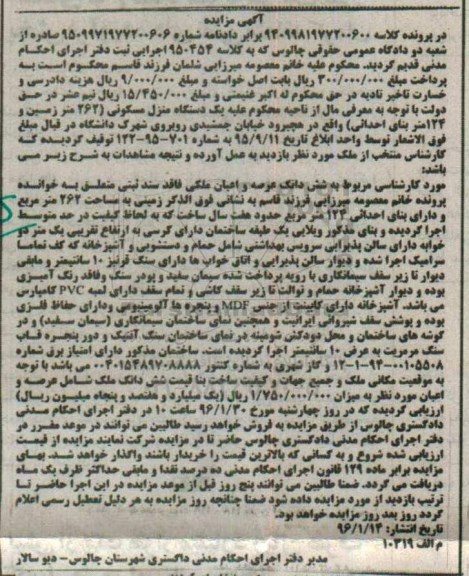 آگهی مزایده
در پرونده کلاسه ۹۴۰۹۹۸۱۹۷۷۲۰۰۶۰۰ برابر دادنامه شماره ۹۵۰۹۹۷۱۹۷۷۲۰۰۶۰۶ صادره از
شعبه دو دادگاه عمومی حقوقی چالوس که به کلاسه ۹۵۰۴۵۴ اجرایی ثبت دفتر اجرای احکام
مدنی گردید. محکوم علیه خانم معصومه میرزایی شلمان فرزند قاسم محکوم است به
پرداخت مبلغ ۳۰۰/۰۰۰/۰۰۰ ریال بابت اصل خواسته و مبلغ ۹/۰۰۰/۰۰۰ ریال هزینه دادرسی و
خسارت تاخیر تادیه در حق محکوم له اکبر غنیمتی و مبلغ ۱۵/۴۵۰/۰۰۰ ریال نیم عشر در حق
دولت با توجه به معرفی مال از ناحیه محکوم علیه یک دستگاه منزل مسکونی (۲۶۲ متر زمین و
۱۲۴متر بنای احداثی) واقع در هچیرود خیابان جمشیدی روبروی شهرک دانشگاه در قبال مبلغ
فوق الاشعار توسط واحد ابلاغ تاریخ ۹۵/۹/۱۱ به شماره ۷۰۱-۹۵-۱۳۲ توقیف گردیده که
کارشناس منتخب از ملک مورد نظر بازدید به عمل آورده و نتیجه مشاهدات به شرح زیر می
باشد:
مورد کارشناسی مربوط به شش دانگ عرصه و اعیان ملکی فاقد سند ثبتی متعلق به خوانده
پرونده خانم معصومه میرزایی فرزند قاسم به نشانی فوق الذکر زمینی به مساحت ۲۶۲ متر مربع
و دارای بنای احداثی ۱۲۴ متر مربع حدود هفت سال ساخت که به لحاظ کیفیت در حد متوسط
اجرا گردیده و بنای مذکور ویلایی یک طبقه ساختمان دارای کرسی به ارتفاع تقریبی یک متر دو
خوابه دارای سالن پذیرایی سرویس بهداشتی شامل حمام و دستشویی و آشپزخانه که کف تماما
سرامیک اجرا شده و دیوار سالن پذیرایی و اتاق خواب ها دارای سنگ قرنیز ۱۰ سانتیمتر و مابقی
دیوار تا زیر سقف سیمانکاری با رویه پرداخت شده سیمان سفید و پودر سنگ وفاقد رنگ آمیزی
بوده و دیوار آشپزخانه حمام و توالت تا زیر سقف کاشی و تمام سقف دارای لمبه PVC کامپارس
می باشد. آشپزخانه دارای کابینت از جنس MDF و پنجره ها آلومینیومی ودارای حفاظ فلزی
بوده و پوشش سقف شیروانی ایرانیت و همچنین نمای ساختمان سیمانکاری (سیمان سفید) و در
گوشه های ساختمان و محل دودکش شومینه در نمای ساختمان سنگ آنتیک و دور پنجره قاب
سنگ مرمریت به عرض ۱۰ سانتیمتر اجرا گردیده است. ساختمان مذکور دارای امتیاز برق شماره
۱۲-۱-۹۴-۰۰۱۰۵۵۰۸ و گاز شهری به شماره کنتور ۰۰۴۰۱۵۴۸۹۷۰۸۸۸۸ می باشد با توجه
به موقعیت مکانی ملک و جمیع جهات و کیفیت ساخت بنا قیمت شش دانگ ملک شامل عرصه و
اعیان مورد نظر به میزان ۱/۷۵۰/۰۰۰/۰۰۰ ریال (یک میلیارد و هفتصد و پنجاه میلیون ریال)
ارزیابی گردیده که در روز چهارشنبه مورخ ۹۶/۱/۳۰ ساعت ۱۰ در دفتر اجرای احکام مدنی
دادگستری چالوس از طریق مزایده به فروش خواهد رسید طالبین می توانند در موعد مقرر در
دفتر اجرای احکام مدنی دادگستری چالوس حاضر تا در مزایده شرکت نمایند مزایده از قیمت
ارزیابی شده شروع و به کسانی که بالاترین قیمت را خریدار باشند واگذار خواهد شد. بهای
مزایده برابر ماده ۱۲۹ قانون اجرای احکام مدنی ده درصد نقدا و مابقی حداکثر ظرف یک ماه
دریافت می گردد. ضمنا طالبین می توانند پنج روز قبل از موعد مزایده در این اجرا حاضر تا
ترتیب بازدید از مورد مزایده داده شود ضمنا چنانچه روز مزایده به هر دلیل تعطیل رسمی اعلام
گردد روز بعد روز مزایده خواهد بود.
تاریخ انتشار: ۹۶/۱/۱۴
م الف ۱۰۳۱۹
مدیر دفتر اجرای احکام مدنی دادگستری شهرستان چالوس- دیو سالار